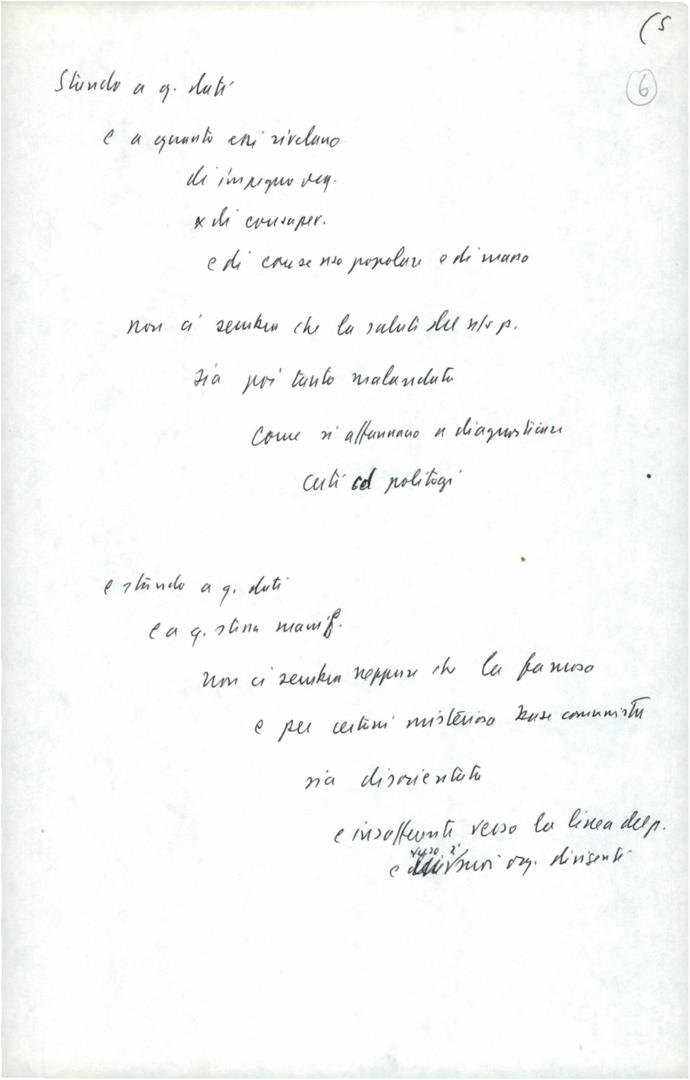 (5
6
Stando a q. dati
e a quanto essi rivelano
di impegno
di consaper.
e di consenso popolare e di massa
non ci sembra che la salute del n/s p.
sia poi tanto malandata
come si affannano a diagnosticare
certi politogi
e stando a q. dati
e a q. stessa manif.
non ci sembra neppure che la famosa
e per certuni misteriosa base comunista
sia disorientata
e insofferente verso la linea del p.
e verso i suoi org. dirigenti